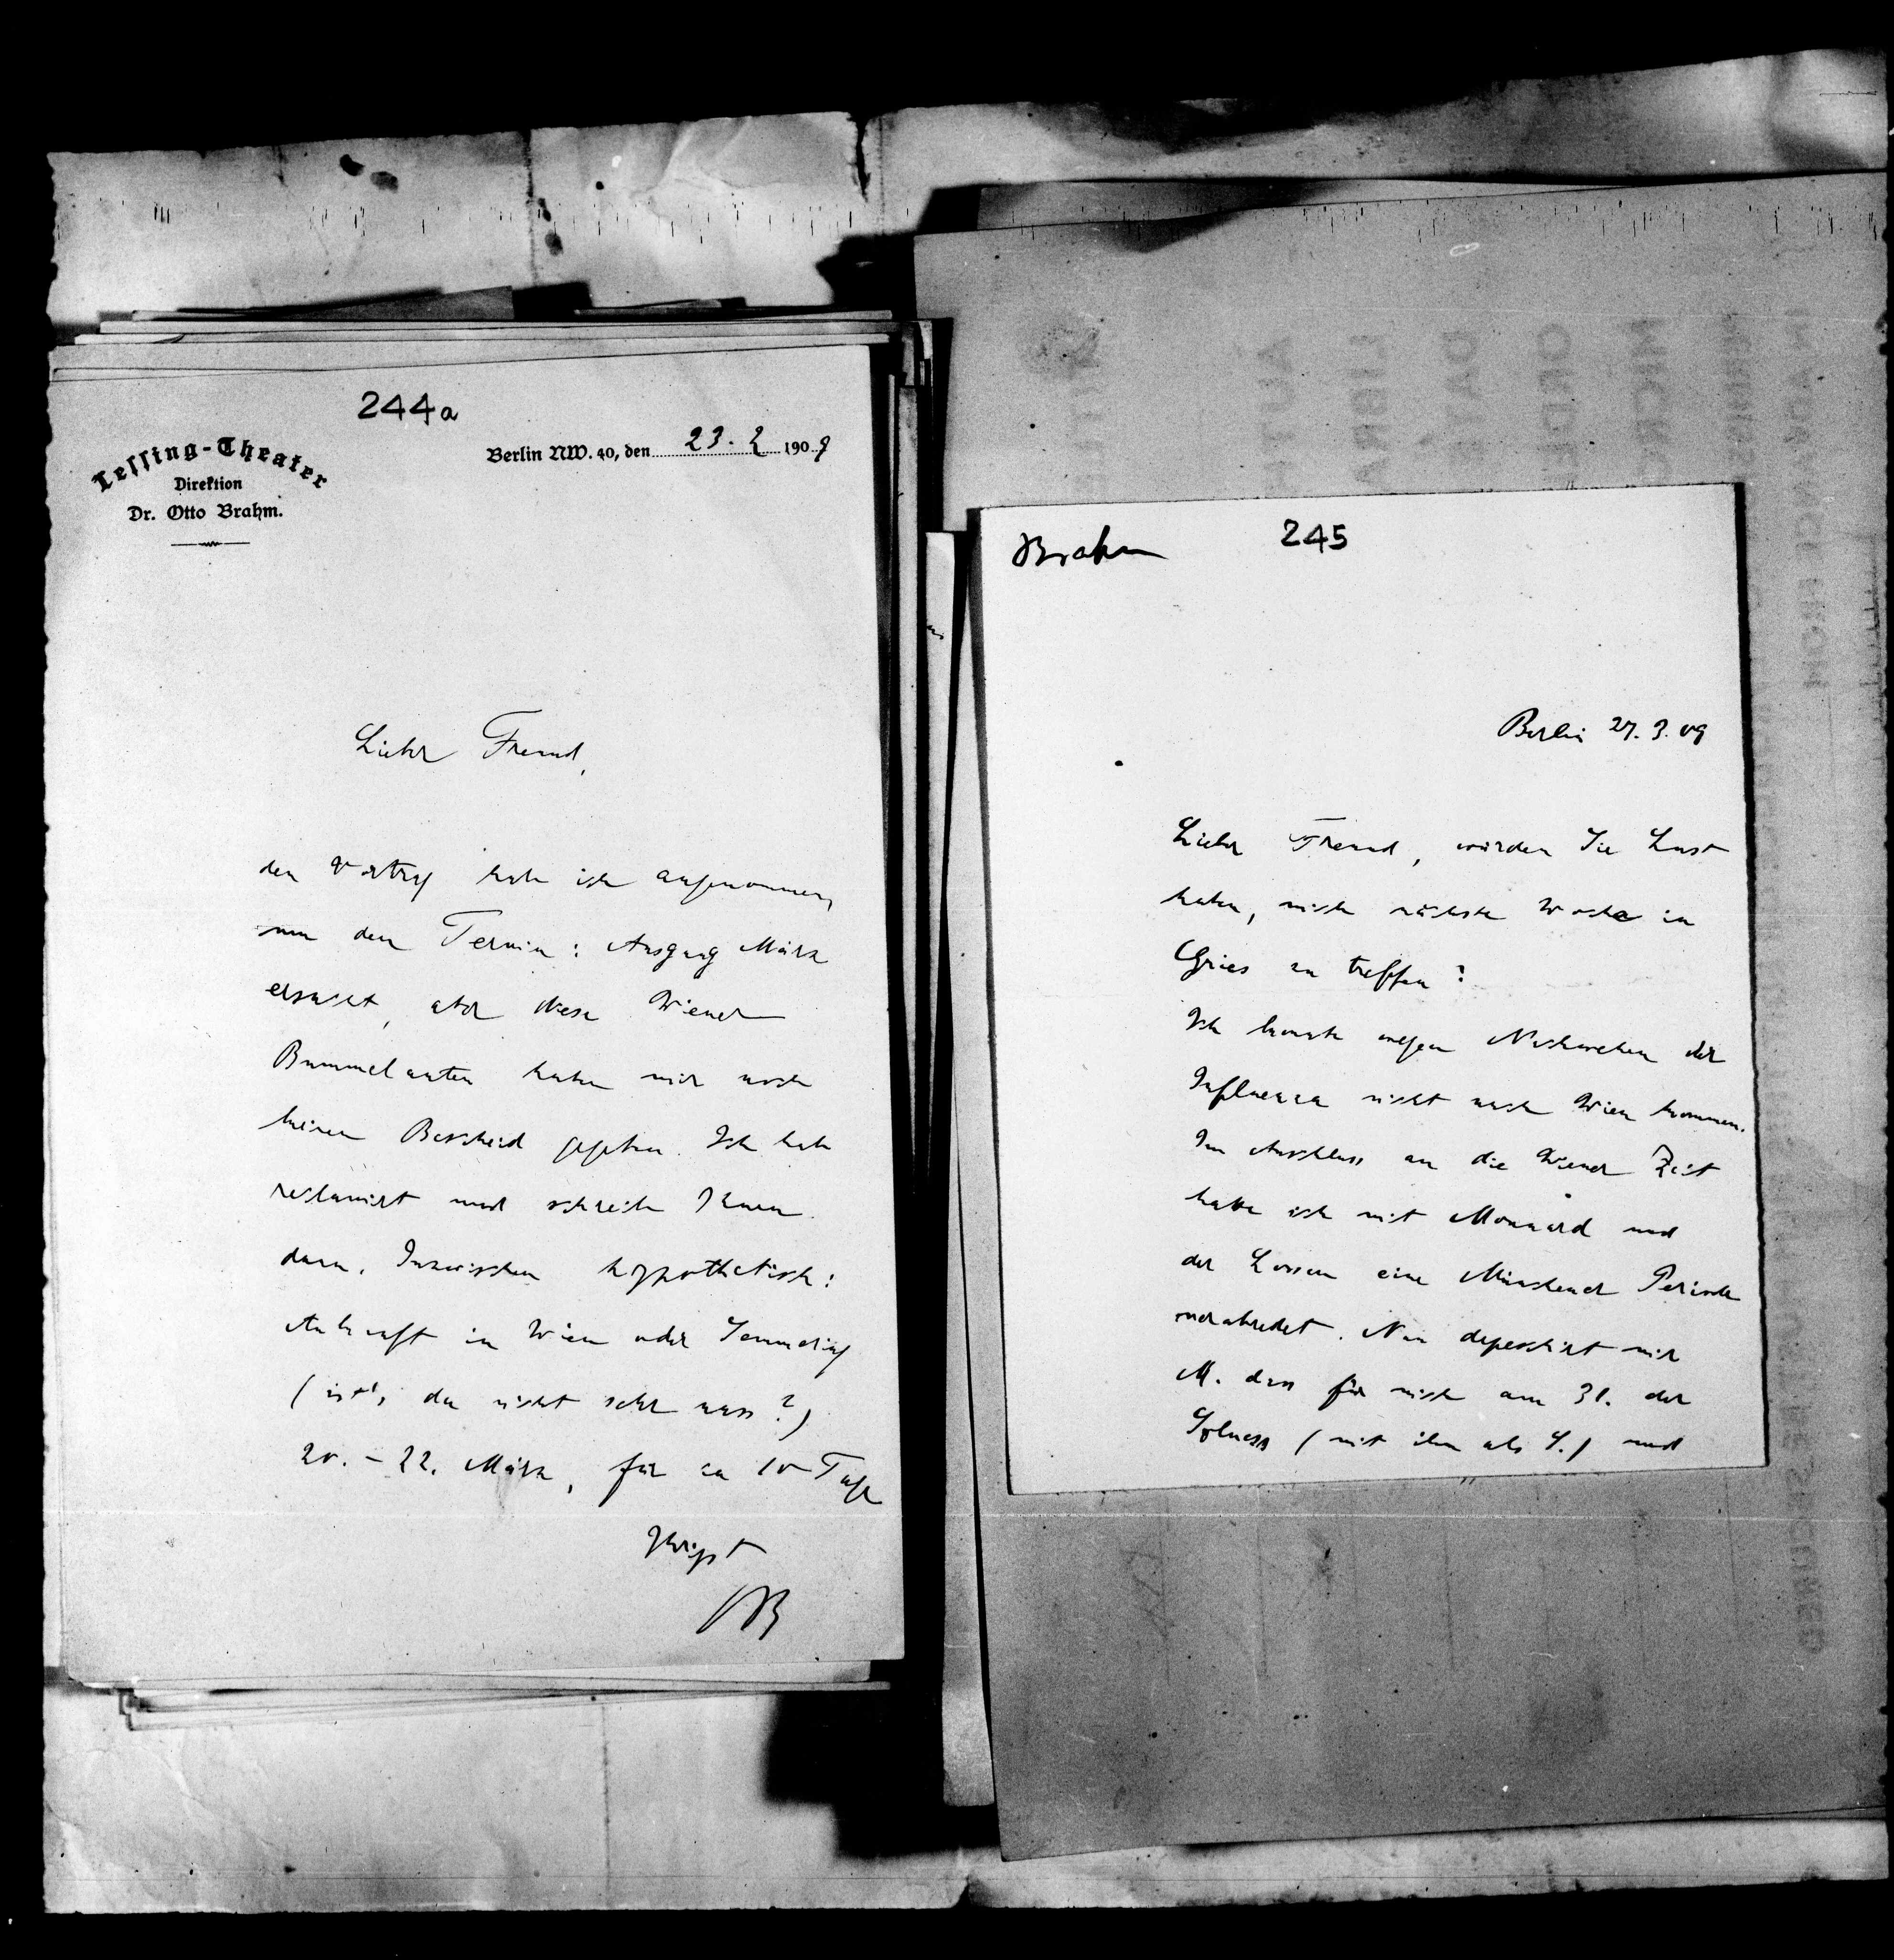 244a
Lessing-Theater
Direktion
Dr. Otto Brahm.
Berlin NW. 40, den 23. 2 1909
Lieber Freund,
den Vortrag habe ich angenommen,
um den Termin: Ausgang März
ersucht, aber diese Wiener
Bummelanten haben mir noch
keinen Bescheid gegeben. Ich habe
reclamirt und schreibe Ihnen
dann. Inzwischen hypothetisch:
Ankunft in Wien oder Semmering
(ist's da nicht sehr nass?)
20. – 22. März, für ca 10 Tage
Herzlichst
OB
Brahm
245
Berlin 27. 3. 09
Lieber Freund, würden Sie Lust
haben, mich nächste Woche in
Gries zu treffen?
Ich konnte wegen Nachwehen der
Influenza nicht nach Wien kommen.
Im Anschluss an die Wiener Zeit
hatte ich mit Monnard und
der Lossen eine Münchener Periode
verabredet. Nun depeschirt mir
M. dass für mich am 31. der
Solness (mit ihm als S.) und